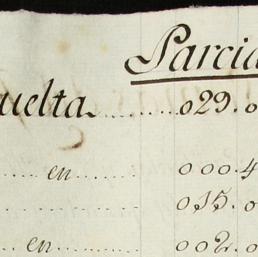 Parcia
uelta 029.0
en 000.4
015.0
en 002.0